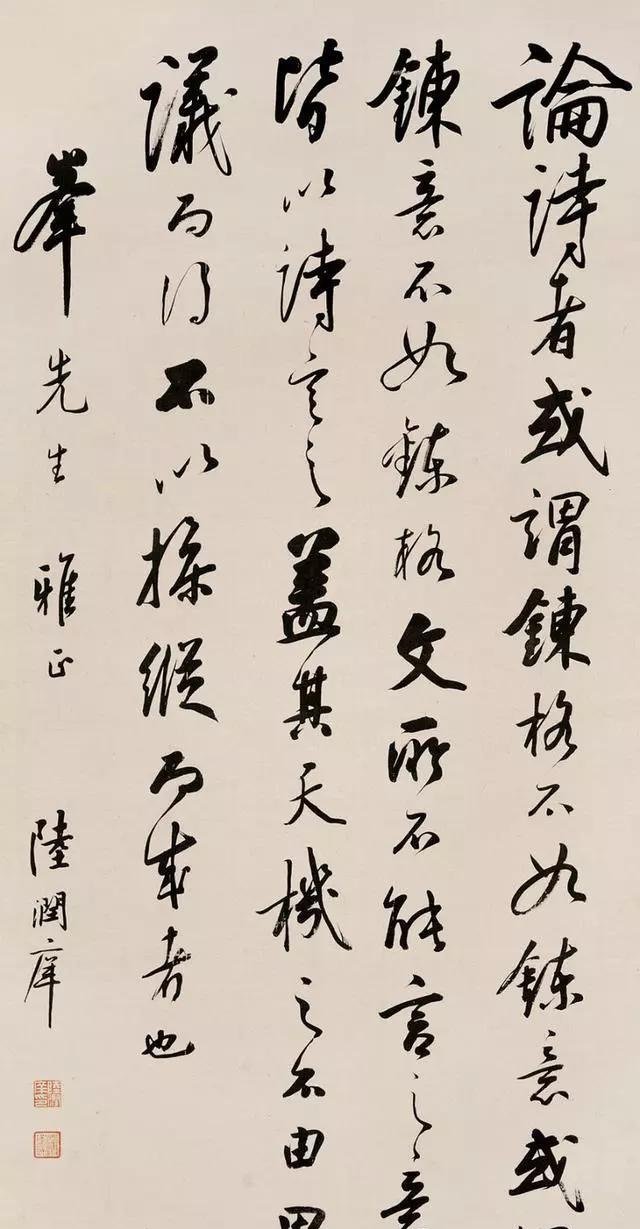 論詩者或謂鍊格不如鍊意或
鍊意不如鍊格文所不能言之意
皆以詩言之蓋其天機之不由思
議而得不以操縱而成者也
峯先生雅正
陸潤庠